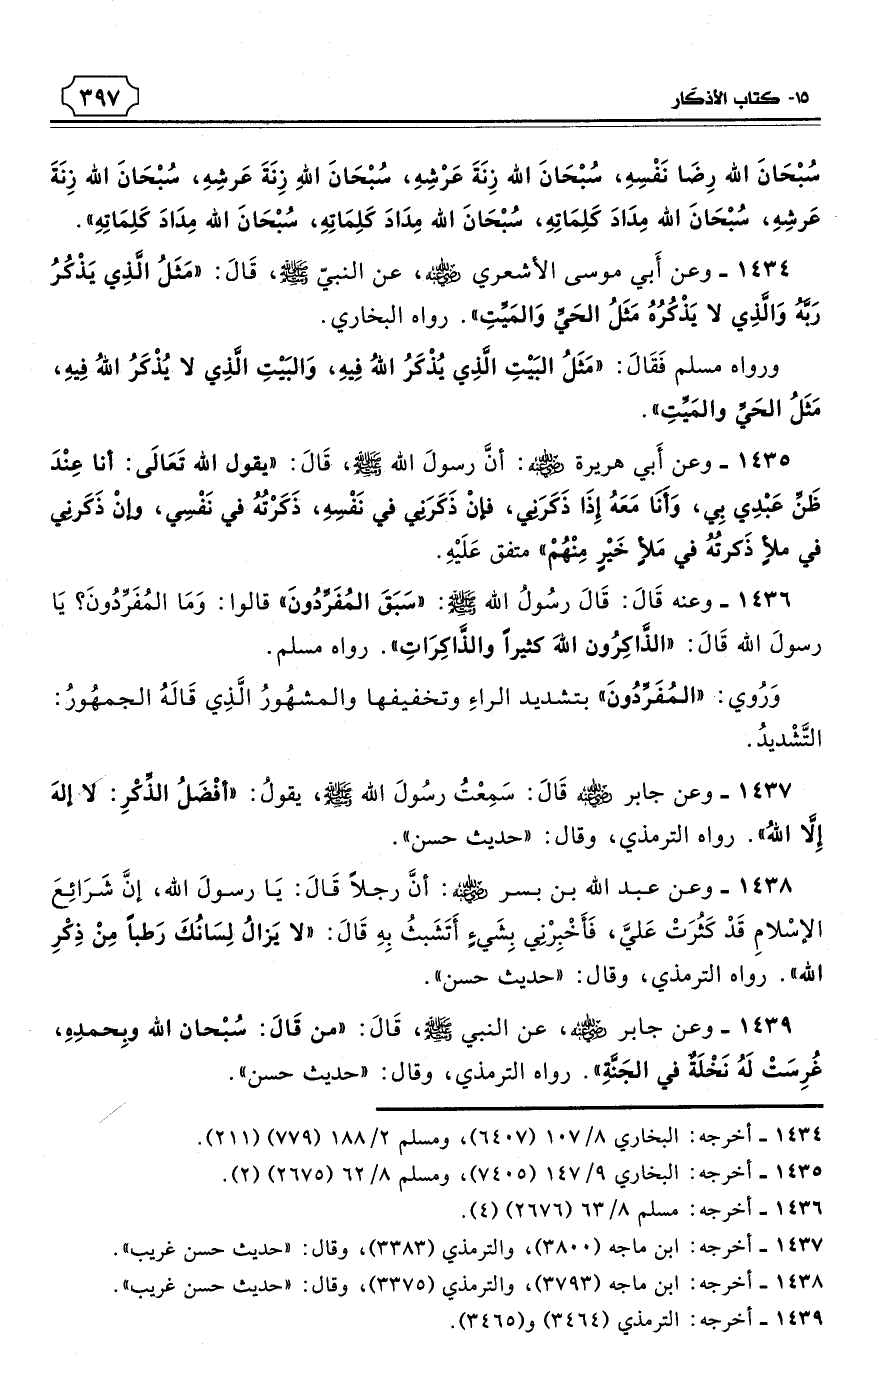 ١٥- كتاب الأذكار ٣٩٧
سُبْحَانَ الله رِضَا نَفْسِهِ، سُبْحَانَ الله زِنَةَ عَرْشِهِ، سُبْحَانَ اللهِ زِنَةَ عَرشِهِ، سُبْحَانَ الله زِنَةَ
عَرشِهِ، سُبْحَانَ الله مِدَادَ كَلِمَاتِهِ، سُبْحَانَ الله مِدَادَ كَلِمَاتِهِ، سُبْحَانَ الله مِدَادَ كَلِمَاتِهِ».
١٤٣٤ ـ وعن أَبي موسى الأشعري رضي الله عنه، عن النبيّ ﷺ، قَالَ: «مَثَلُ الَّذِي يَذْكُرُ
رَبَّهُ وَالَّذِي لا يَذْكُرُهُ مَثَلُ الحَيِّ وَالمَيِّتِ». رواه البخاري.
ورواه مسلم فَقَالَ: «مَثَلُ البَيْتِ الَّذِي يُذْكَرُ اللهُ فِيهِ، وَالبَيْتِ الَّذِي لا يُذْكَرُ اللهُ فِيهِ،
مَثَلُ الحَيِّ والمَيِّتِ».
١٤٣٥ ـ وعن أَبي هريرة رضي الله عنه: أنَّ رسولَ الله ﷺ، قَالَ: «يقول الله تَعَالَى: أنا عِنْدَ
ظَنِّ عَبْدِي بِي، وَأَنَا مَعَهُ إِذَا ذَكَرَنِي، فإنْ ذَكَرَنِي في نَفْسِهِ، ذَكَرْتُهُ في نَفْسِي، وإنْ ذَكَرنِي
في ملأٍ ذَكرتُهُ في مَلأٍ خَيْرٍ مِنْهُمْ» متفق عَلَيْهِ.
١٤٣٦ ـ وعنه قَالَ: قَالَ رسُولُ الله ﷺ: «سَبَقَ المُفَرِّدُونَ» قالوا: وَمَا المُفَرِّدُونَ؟ يَا
رسولَ الله قَالَ: «الذَّاكِرُون اللهَ كثيراً والذَّاكِرَاتِ». رواه مسلم.
وَرُوي: «المُفَرِّدُونَ» بتشديد الراءِ وتخفيفها والمشهُورُ الَّذِي قَالَهُ الجمهُورُ:
التَّشْديدُ.
١٤٣٧ ـ وعن جابر رضي الله عنه قَالَ: سَمِعْتُ رسُولَ الله ﷺ، يقولُ: «أفْضَلُ الذِّكْرِ: لا إلهَ
إلَّا اللهُ». رواه الترمذي، وقال: «حديث حسن».
١٤٣٨ ـ وعن عبد الله بن بسر رضي الله عنه: أنَّ رجلاً قَالَ: يَا رسولَ الله، إنَّ شَرَائِعَ
الإسْلامِ قَدْ كَثُرَتْ عَليَّ، فَأَخْبِرْنِي بِشَيءٍ أَتَشَبثُ بِهِ قَالَ: «لا يَزالُ لِسَانُكَ رَطباً مِنْ ذِكْرِ
الله». رواه الترمذي، وقال: «حديث حسن».
١٤٣٩ ـ وعن جابر رضي الله عنه، عن النبي ﷺ، قَالَ: «من قَالَ: سُبْحان الله وبِحمدِهِ،
غُرِسَتْ لَهُ نَخْلَةٌ في الجَنَّةِ». رواه الترمذي، وقال: «حديث حسن».
١٤٣٤ ـ أخرجه: البخاري ٨/ ١٠٧ (٦٤٠٧)، ومسلم ٢/ ١٨٨ (٧٧٩) (٢١١).
١٤٣٥ ـ أخرجه: البخاري ٩/ ١٤٧ (٧٤٠٥)، ومسلم ٨/ ٦٢ (٢٦٧٥) (٢).
١٤٣٦ ـ أخرجه: مسلم ٨/ ٦٣ (٢٦٧٦) (٤).
١٤٣٧ ـ أخرجه: ابن ماجه (٣٨٠٠)، والترمذي (٣٣٨٣)، وقال: «حديث حسن غريب».
١٤٣٨ ـ أخرجه: ابن ماجه (٣٧٩٣)، والترمذي (٣٣٧٥)، وقال: «حديث حسن غريب».
١٤٣٩ ـ أخرجه: الترمذي (٣٤٦٤) و(٣٤٦٥).